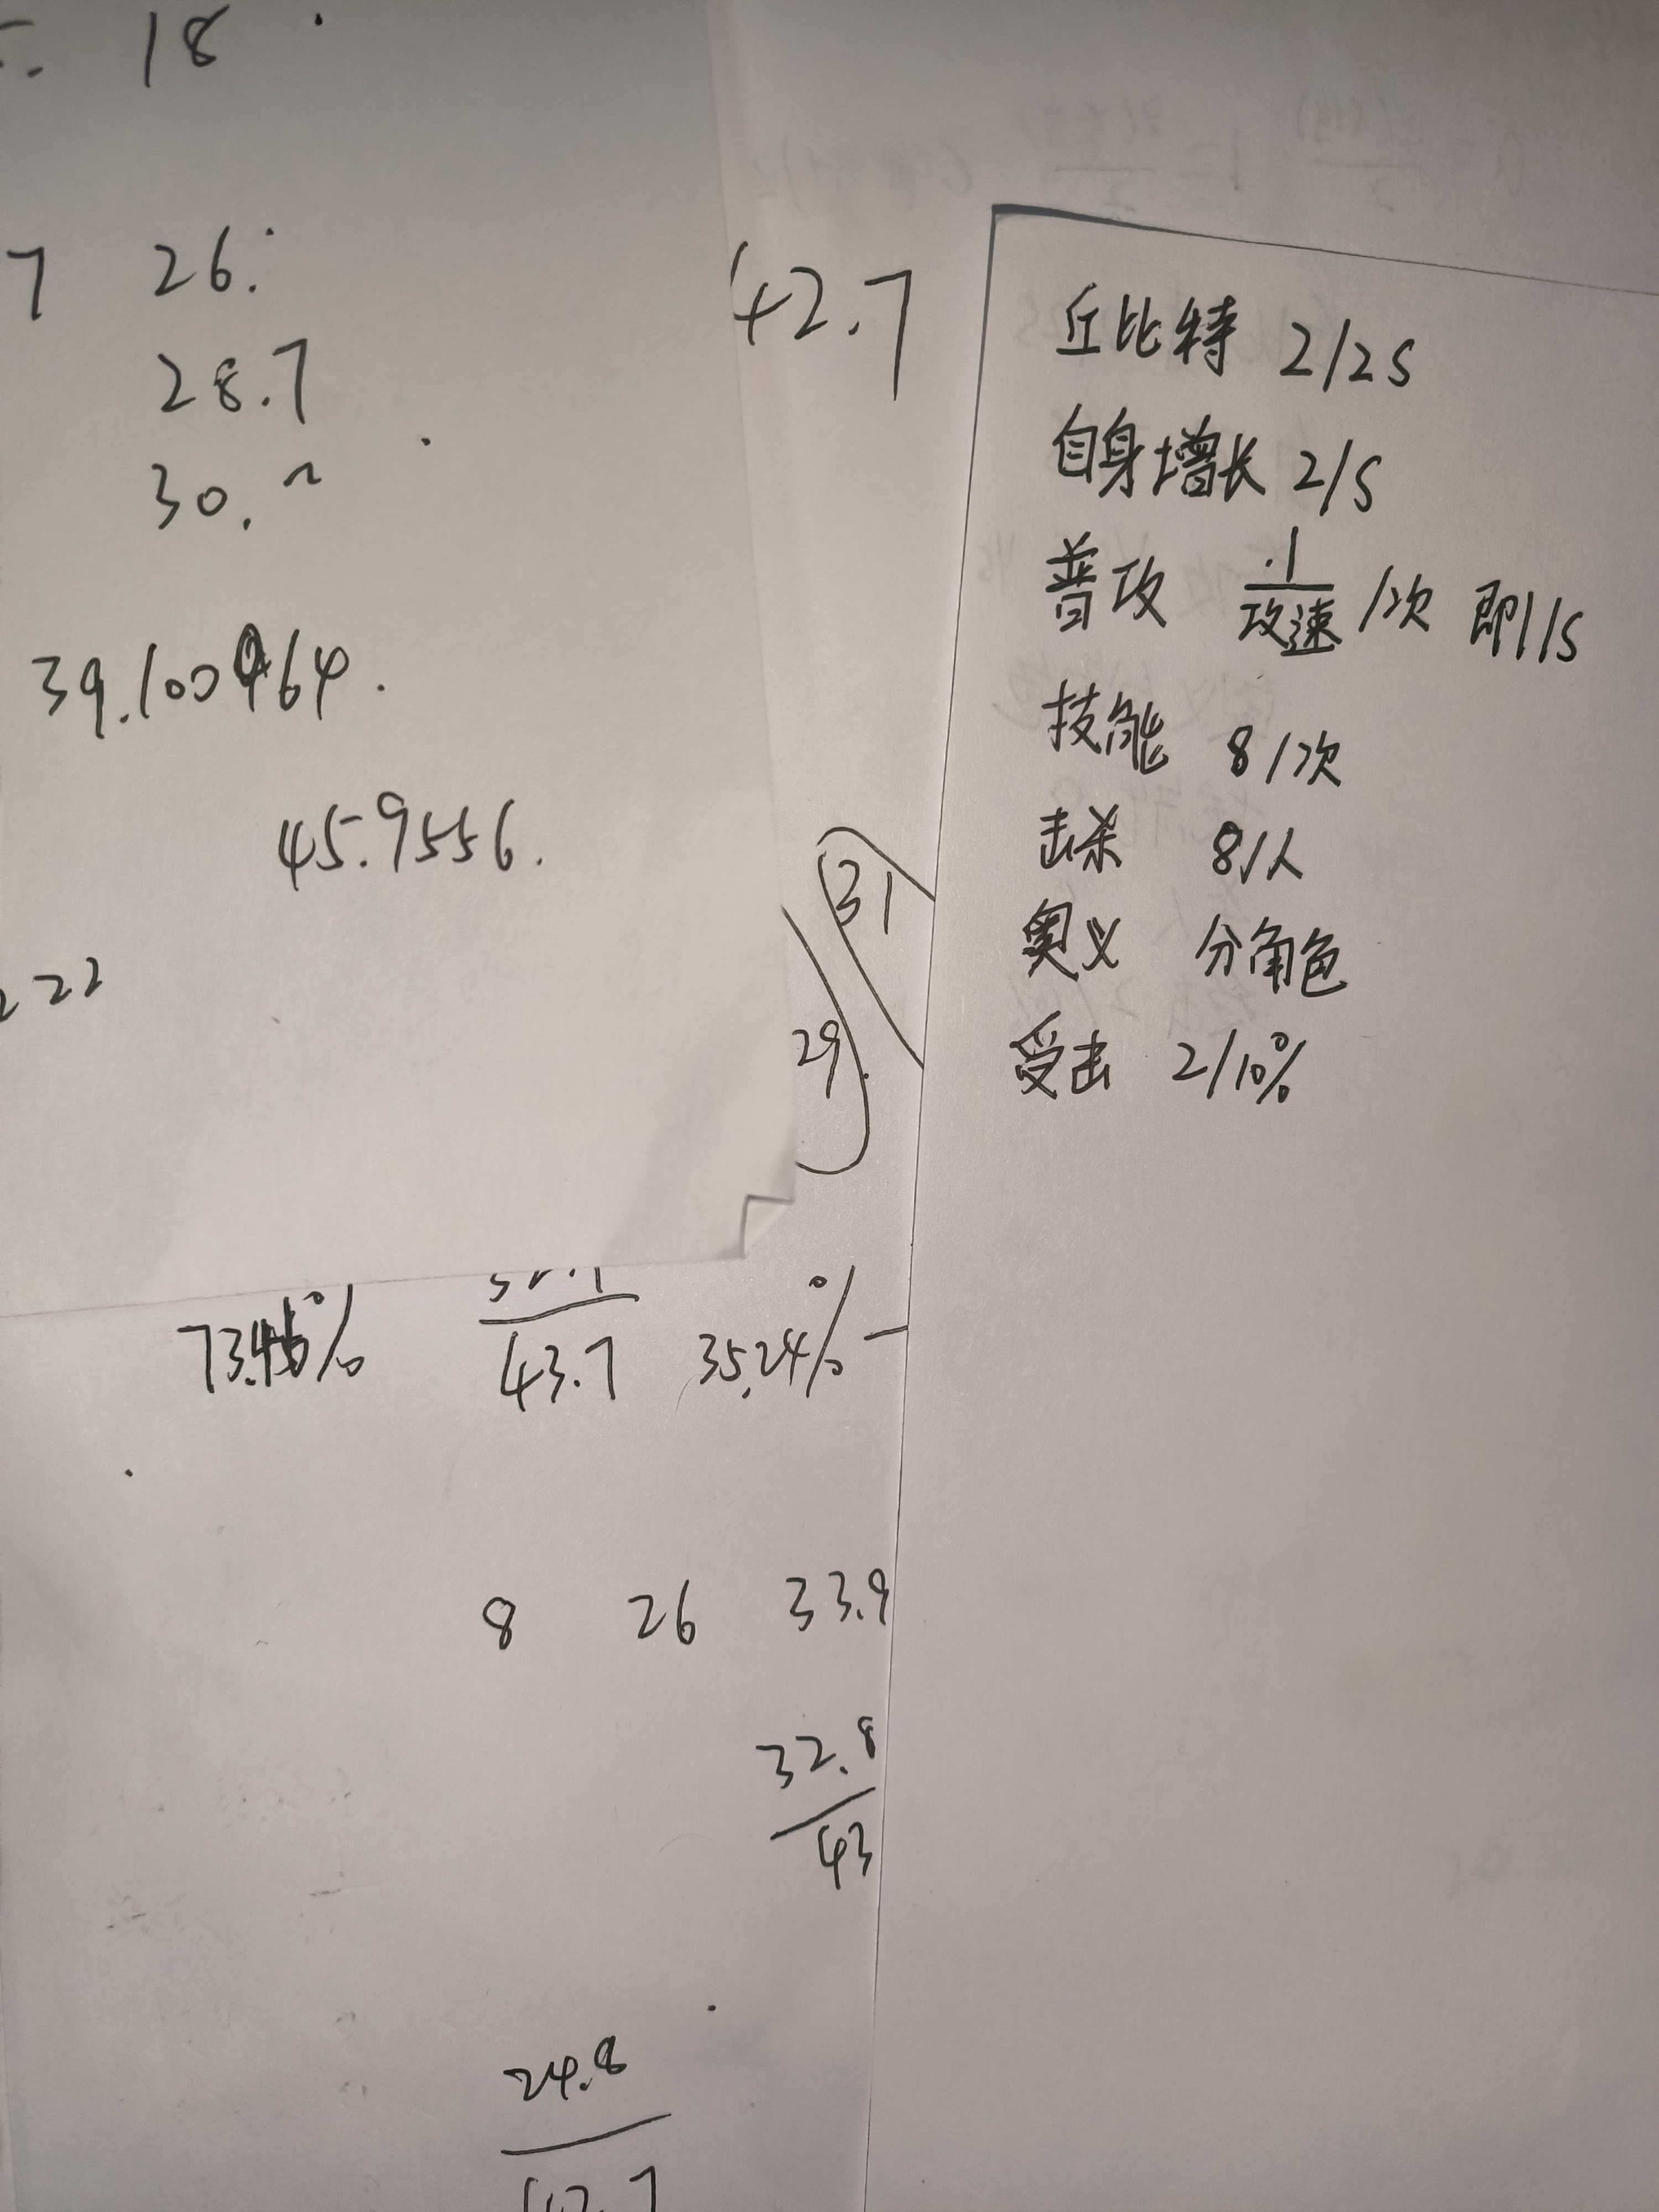 18
7 26.
28.7
30.
39.100964.
45.9556.
222
42.7
31
29.
73.46%
43.7
35.24%
8 26 33.9
32.8
43
24.8
丘比特 2/2s
自身增长 2/s
普攻 1/攻速 /次 即1/s
技能 8/次
击杀 8/人
奥义 分角色
受击 2/10%